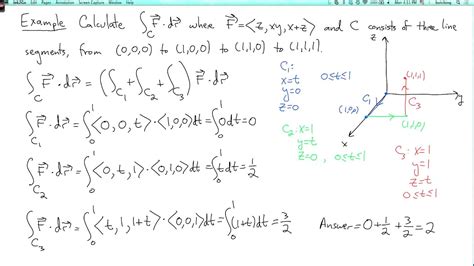 Example Calculate ∫_C F⃗·dr⃗ where F⃗=<z, xy, x+z> and C consists of three line
segments, from (0,0,0) to (1,0,0) to (1,1,0) to (1,1,1).
∫_C F⃗·dr⃗ = (∫_C₁ + ∫_C₂ + ∫_C₃) F⃗·dr⃗
∫_C₁ F⃗·dr⃗ = ∫₀¹ <0, 0, t>·<1,0,0>dt = ∫₀¹ 0dt = 0
∫_C₂ F⃗·dr⃗ = ∫₀¹ <0, t, 1>·<0,1,0>dt = ∫₀¹ t dt = 1/2
∫_C₃ F⃗·dr⃗ = ∫₀¹ <t, 1, 1+t>·<0,0,1>dt = ∫₀¹ (1+t)dt = 3/2
C₁:
x=t
y=0
z=0
0≤t≤1
C₂: x=1
y=t
z=0, 0≤t≤1
C₃: x=1
y=1
z=t
0≤t≤1
z
(1,1,1)
C₁
C₃
y
(1,0,0)
(1,1,0)
x
Answer = 0 + 1/2 + 3/2 = 2